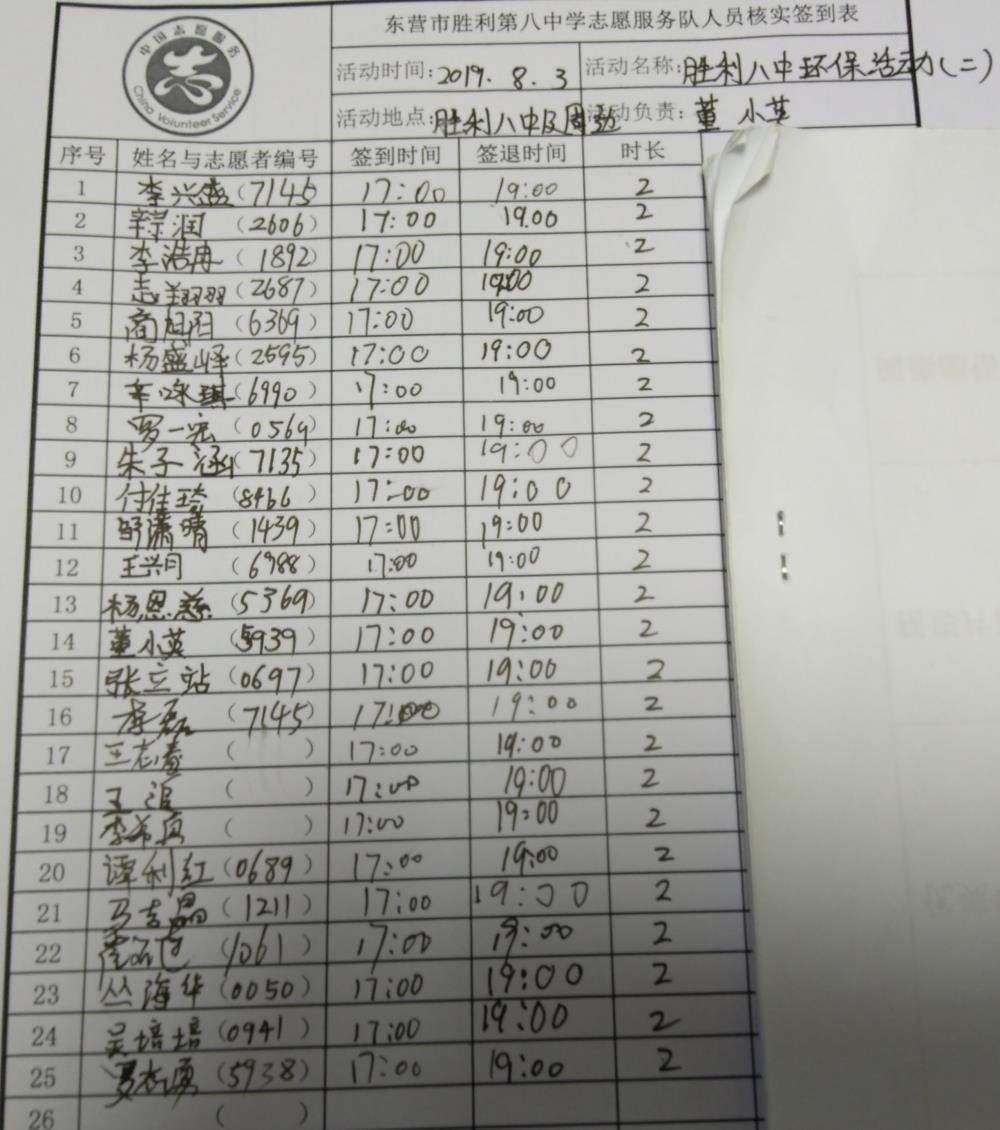 中国志愿服务
志
China Volunteer Service
东营市胜利第八中学志愿服务队人员核实签到表
活动时间:2019.8.3 活动名称:胜利八中环保活动(二)
活动地点:胜利八中及周边 活动负责:董小英
序号 姓名与志愿者编号 签到时间 签退时间 时长
1 李兴盛(7145 17:00 19:00 2
2 润(2606) 17:00 19.00 2
3 李浩冉(1892) 17:00 19:00 2
4 (2687) 17:00 19:00 2
5 商旭阳(6369) 17:00 19:00 2
6 杨盛峰(2595) 17:00 19:00 2
7 辛咏琪(6990) 17:00 19:00 2
8 罗一宏(0569) 17:00 19:00 2
9 朱子涵(7135) 17:00 19:00 2
10 付佳琦(8466) 17:00 19:00 2
11 邹潇晴(1439) 17:00 19:00 2
12 王兴月(6988) 17:00 19:00 2
13 杨恩慈(5369) 17:00 19:00 2
14 董小英(5939) 17:00 19:00 2
15 张立站(0697) 17:00 19:00 2
16 李磊(7145) 17:00 19:00 2
17 王志春( ) 17:00 19:00 2
18 王( ) 17:00 19:00 2
19 李希( ) 17:00 19:00 2
20 谭利红(0689) 17:00 19:00 2
21 马志晶(1211) 17:00 19:00 2
22 (1061) 17:00 19:00 2
23 丛海华(0050) 17:00 19:00 2
24 吴培培(0941) 17:00 19:00 2
25 (5938) 17:00 19:00 2
26 ( )